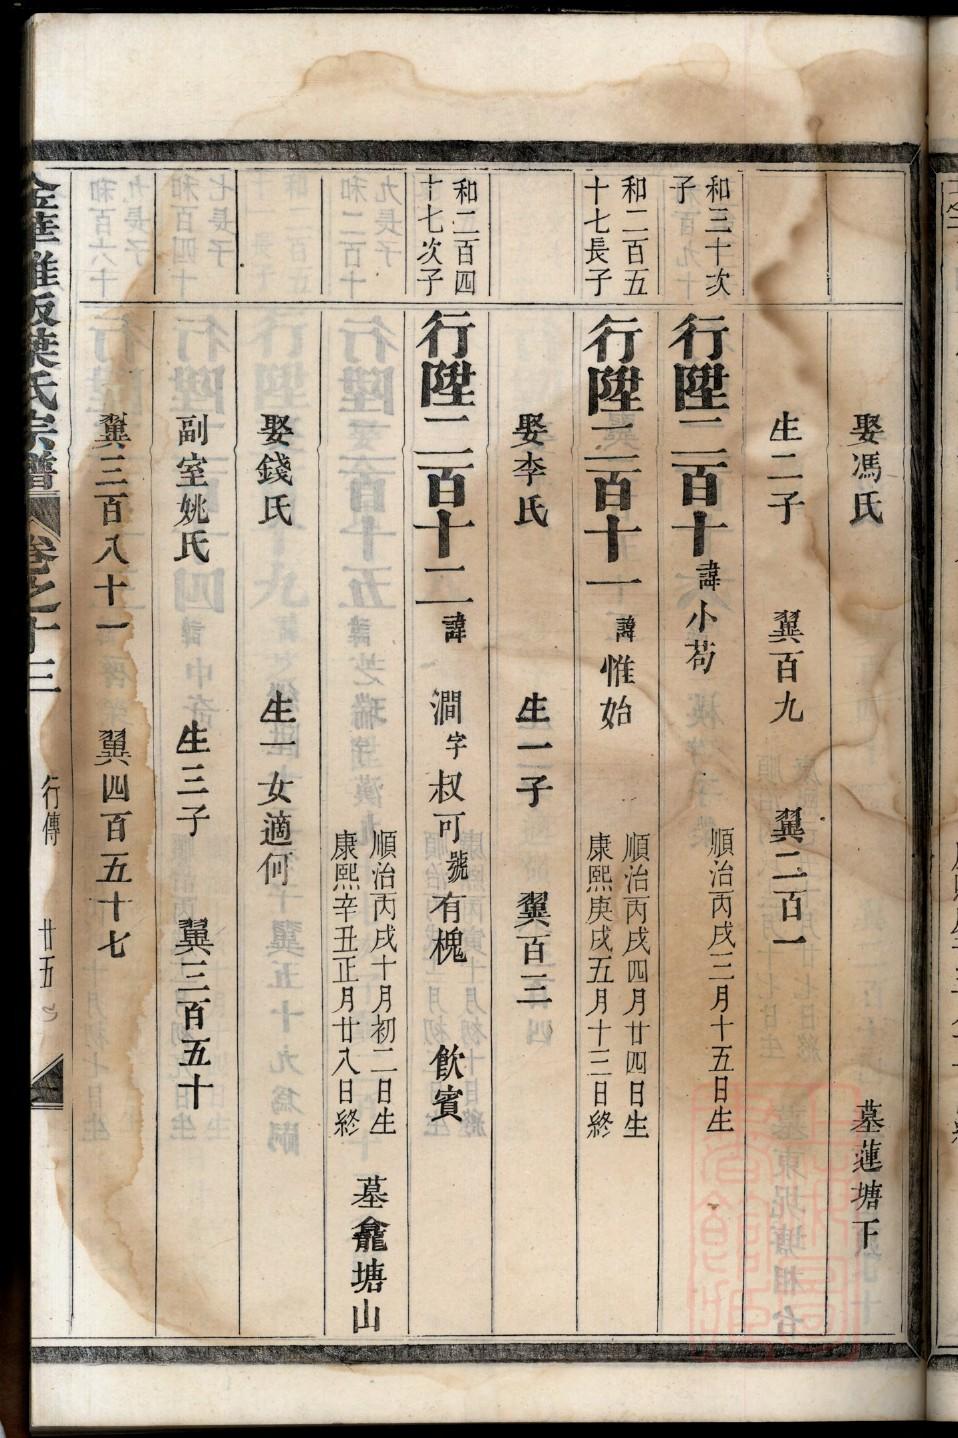 娶馮氏 墓蓮塘下
生二子 翼百九 翼二百一
和三十次子
行陞二百十 諱小苟 順治丙戌三月十五日生
和二百五十七長子
行陞二百十一 諱惟始 順治丙戌四月廿四日生
康熙庚戌五月十三日終
娶李氏 生一子 翼百三
和二百四十七次子
行陞二百十二 諱澗 字叔可 號有槐 飲賓
順治丙戌十月初二日生
康熙辛丑正月廿八日終
墓龕塘山
娶錢氏 生一女適何
副室姚氏 生三子 翼三百五十
翼三百八十一 翼四百五十七
金華雅畈葉氏宗譜 卷之十三 行傳 廿五